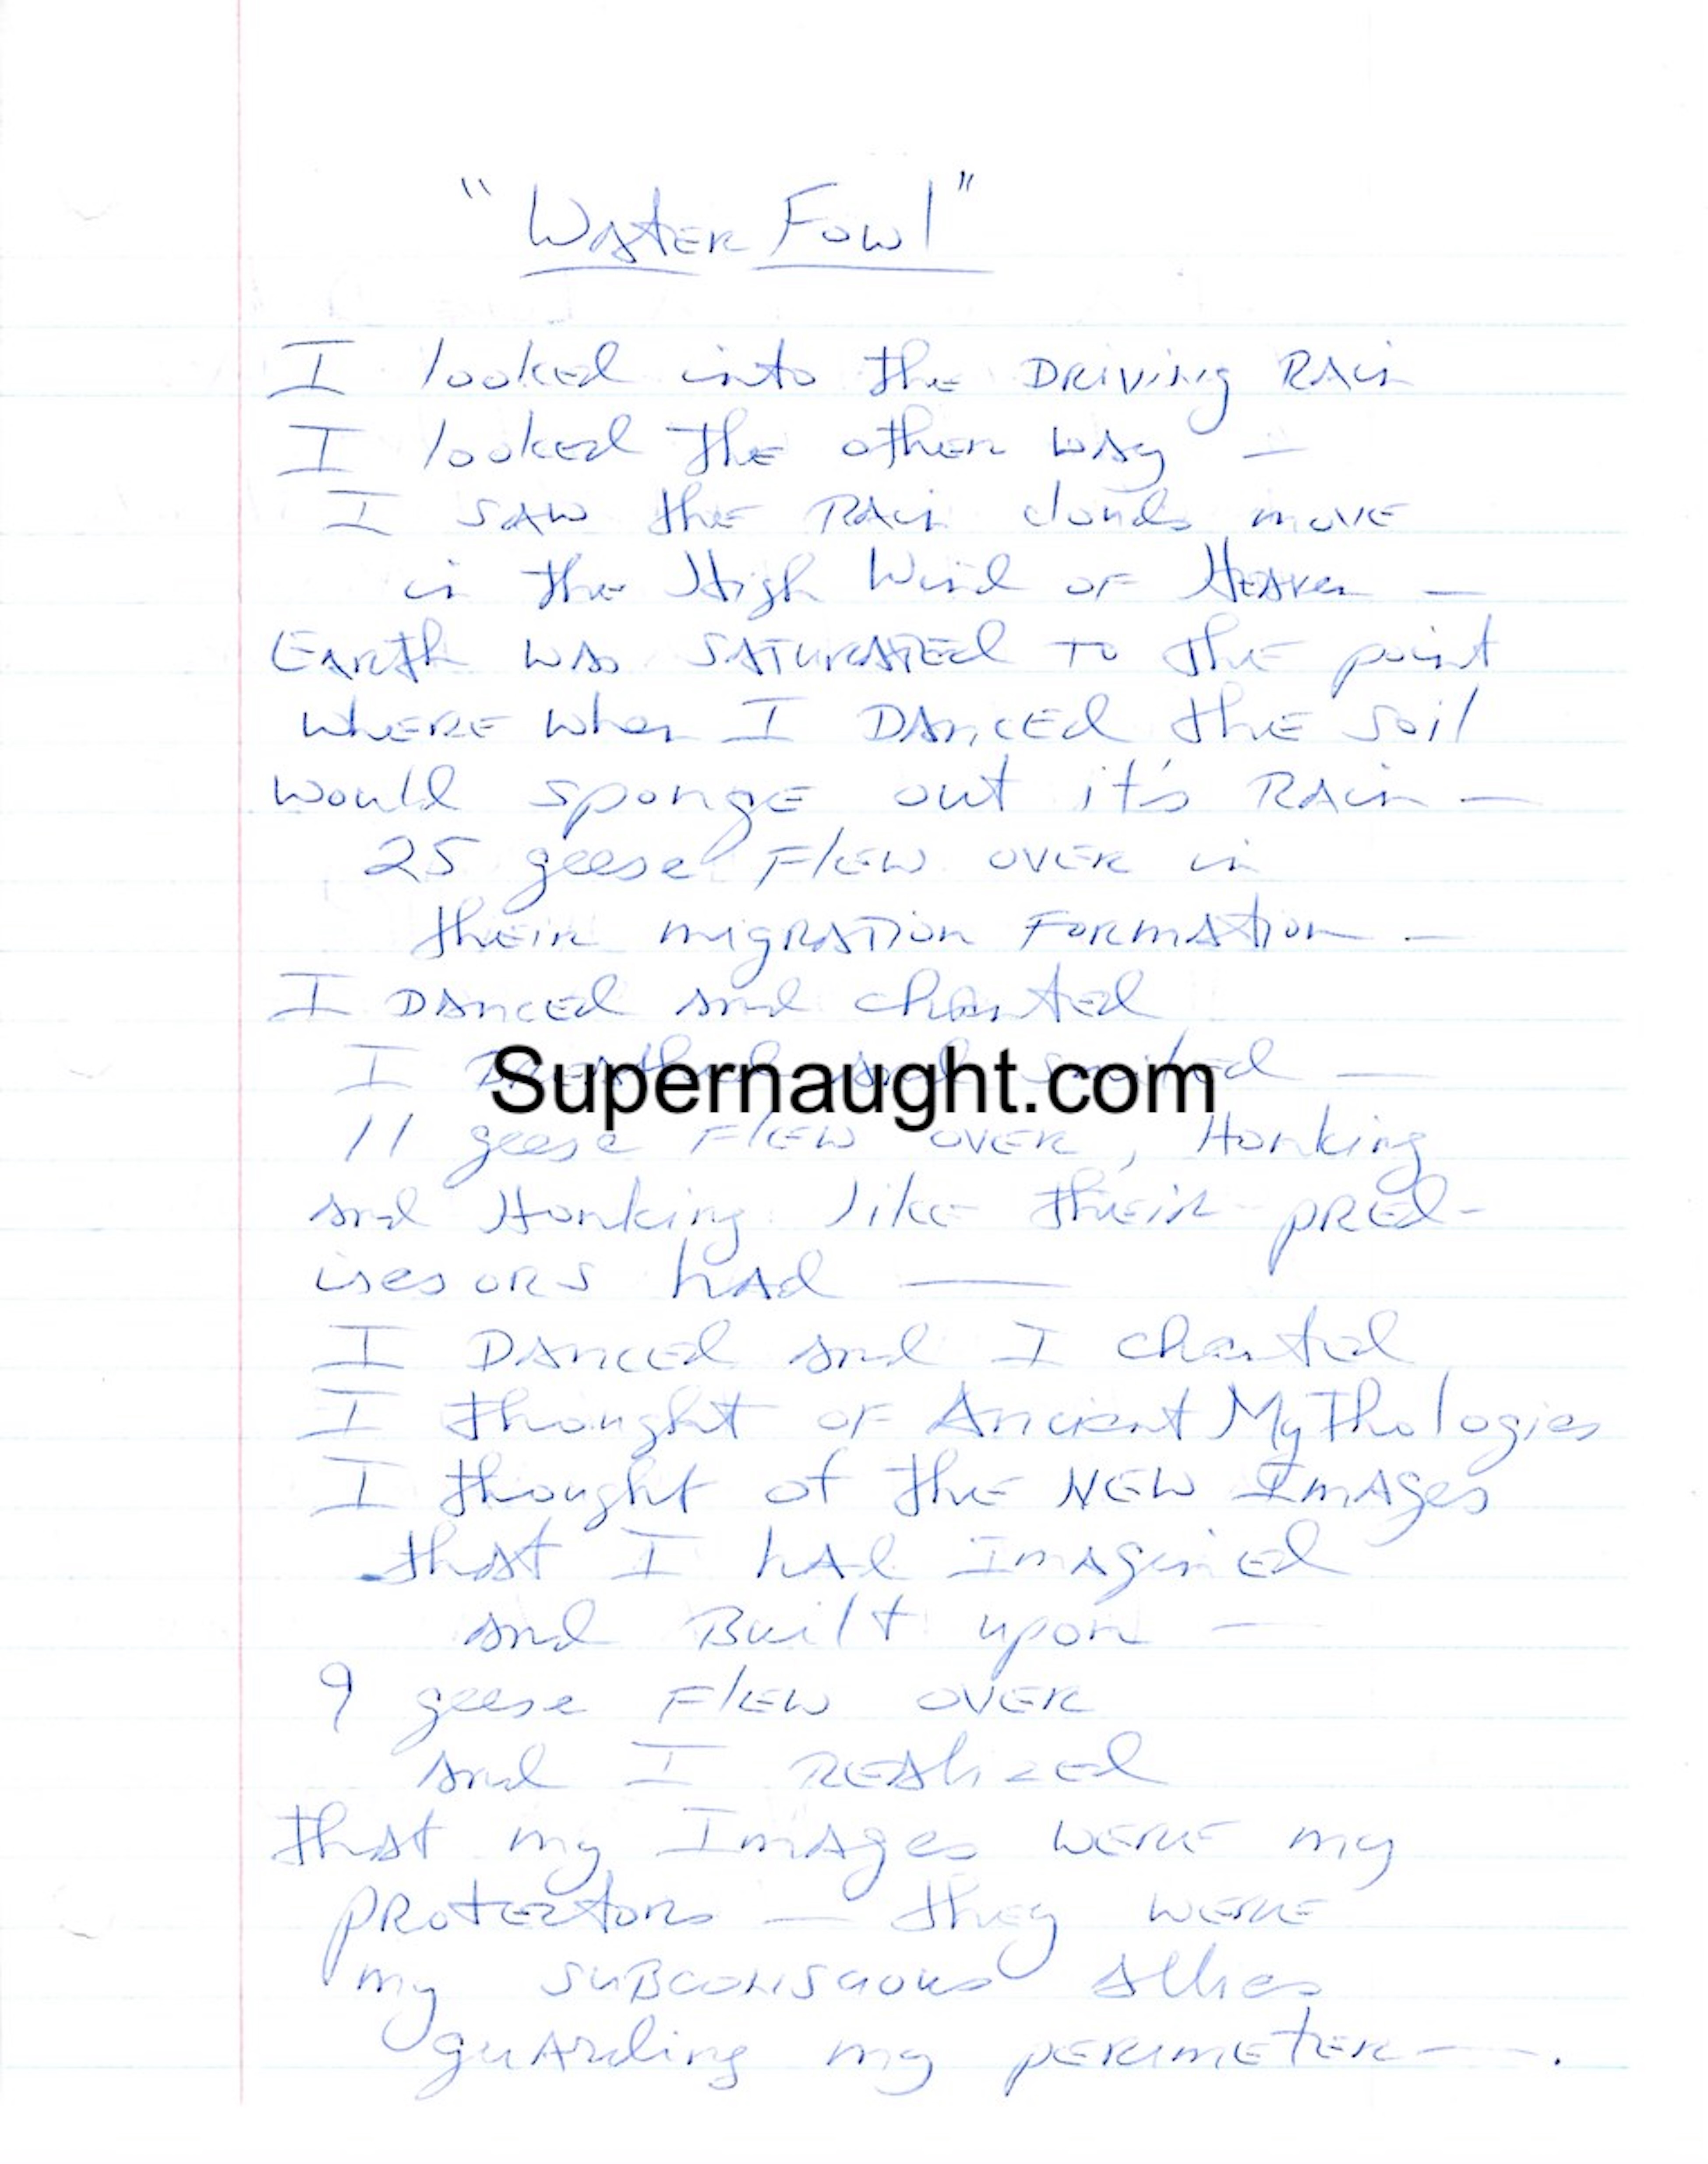 "Water Fowl"
I looked into the Driving Rain
I looked the other way —
I saw the Rain clouds move
in the High Wind of Heaven —
Earth was saturated to the point
where when I Danced the soil
would sponge out it's Rain —
25 geese flew over in
their migration formation —
I Danced and chanted
I and —
Supernaught.com
11 geese flew over, Honking
and Honking like their pred-
isesors had —
I Danced and I chanted
I thought of Ancient Mythologies
I thought of the New Images
that I had Imagined
and Built upon —
9 geese flew over
and I realized
that my Images were my
protectors — they were
my subconscious allies
guarding my perimeter —.